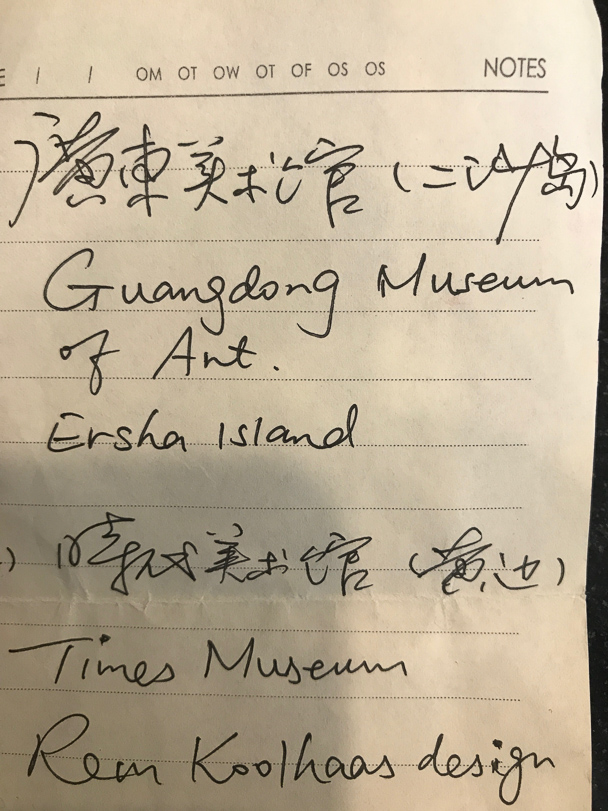 E / / OM OT OW OT OF OS OS NOTES
廣東美术馆(二沙岛)
Guangdong Museum
of Art.
Ersha Island
) 時代美术馆(黄边)
Times Museum
Rem Koolhaas design